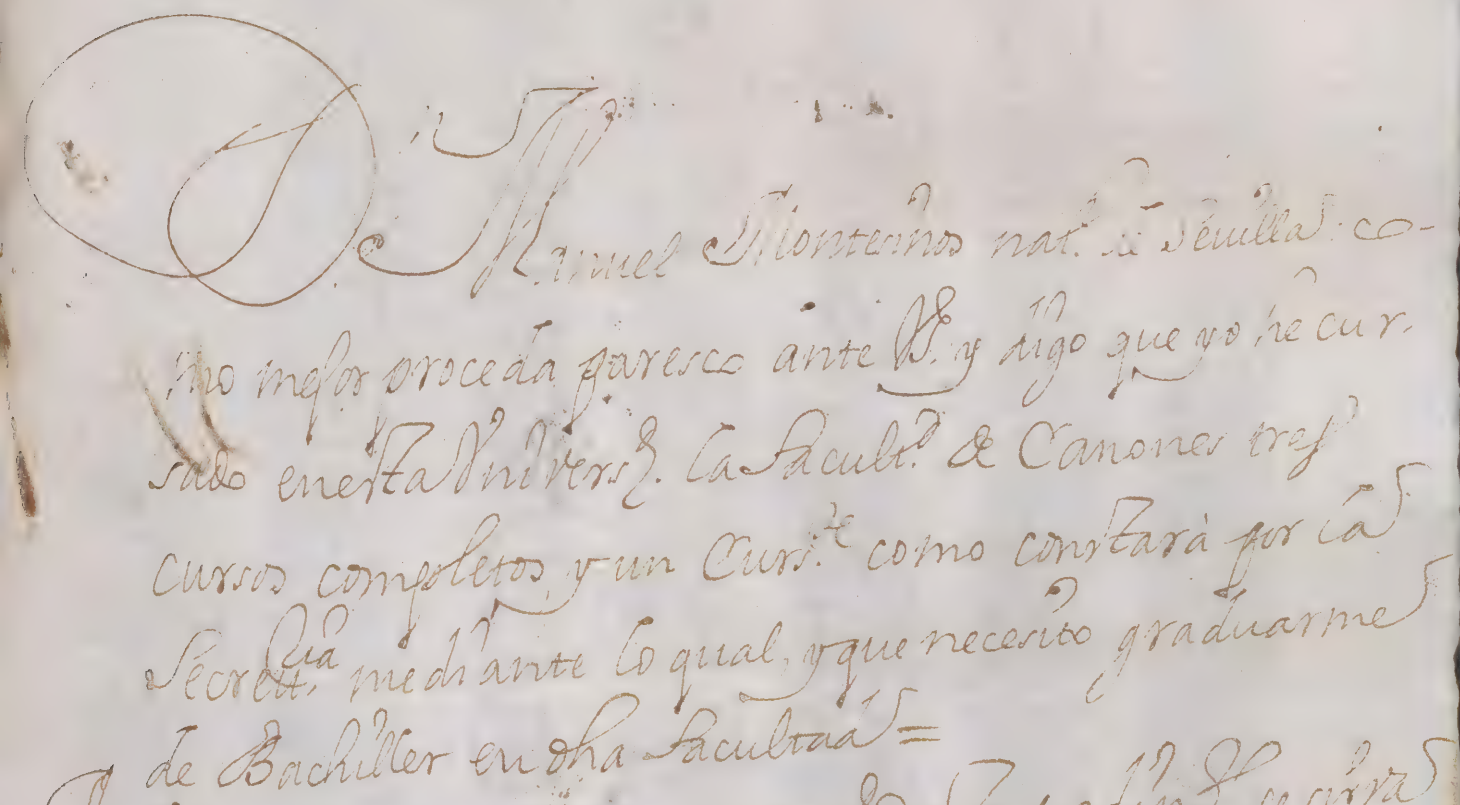 Manuel Montesinos nat.l de Sevilla co-
mo mejor proceda paresco ante V.S. y digo que yo hè cur-
sado en esta Univers.d la facult.d de Canones tres
cursos completos, y un Curs.te como constarà por la
Secrett.ria mediante lo qual, y que necesito graduarme
de Bachiller en dha facultad =
se sirva